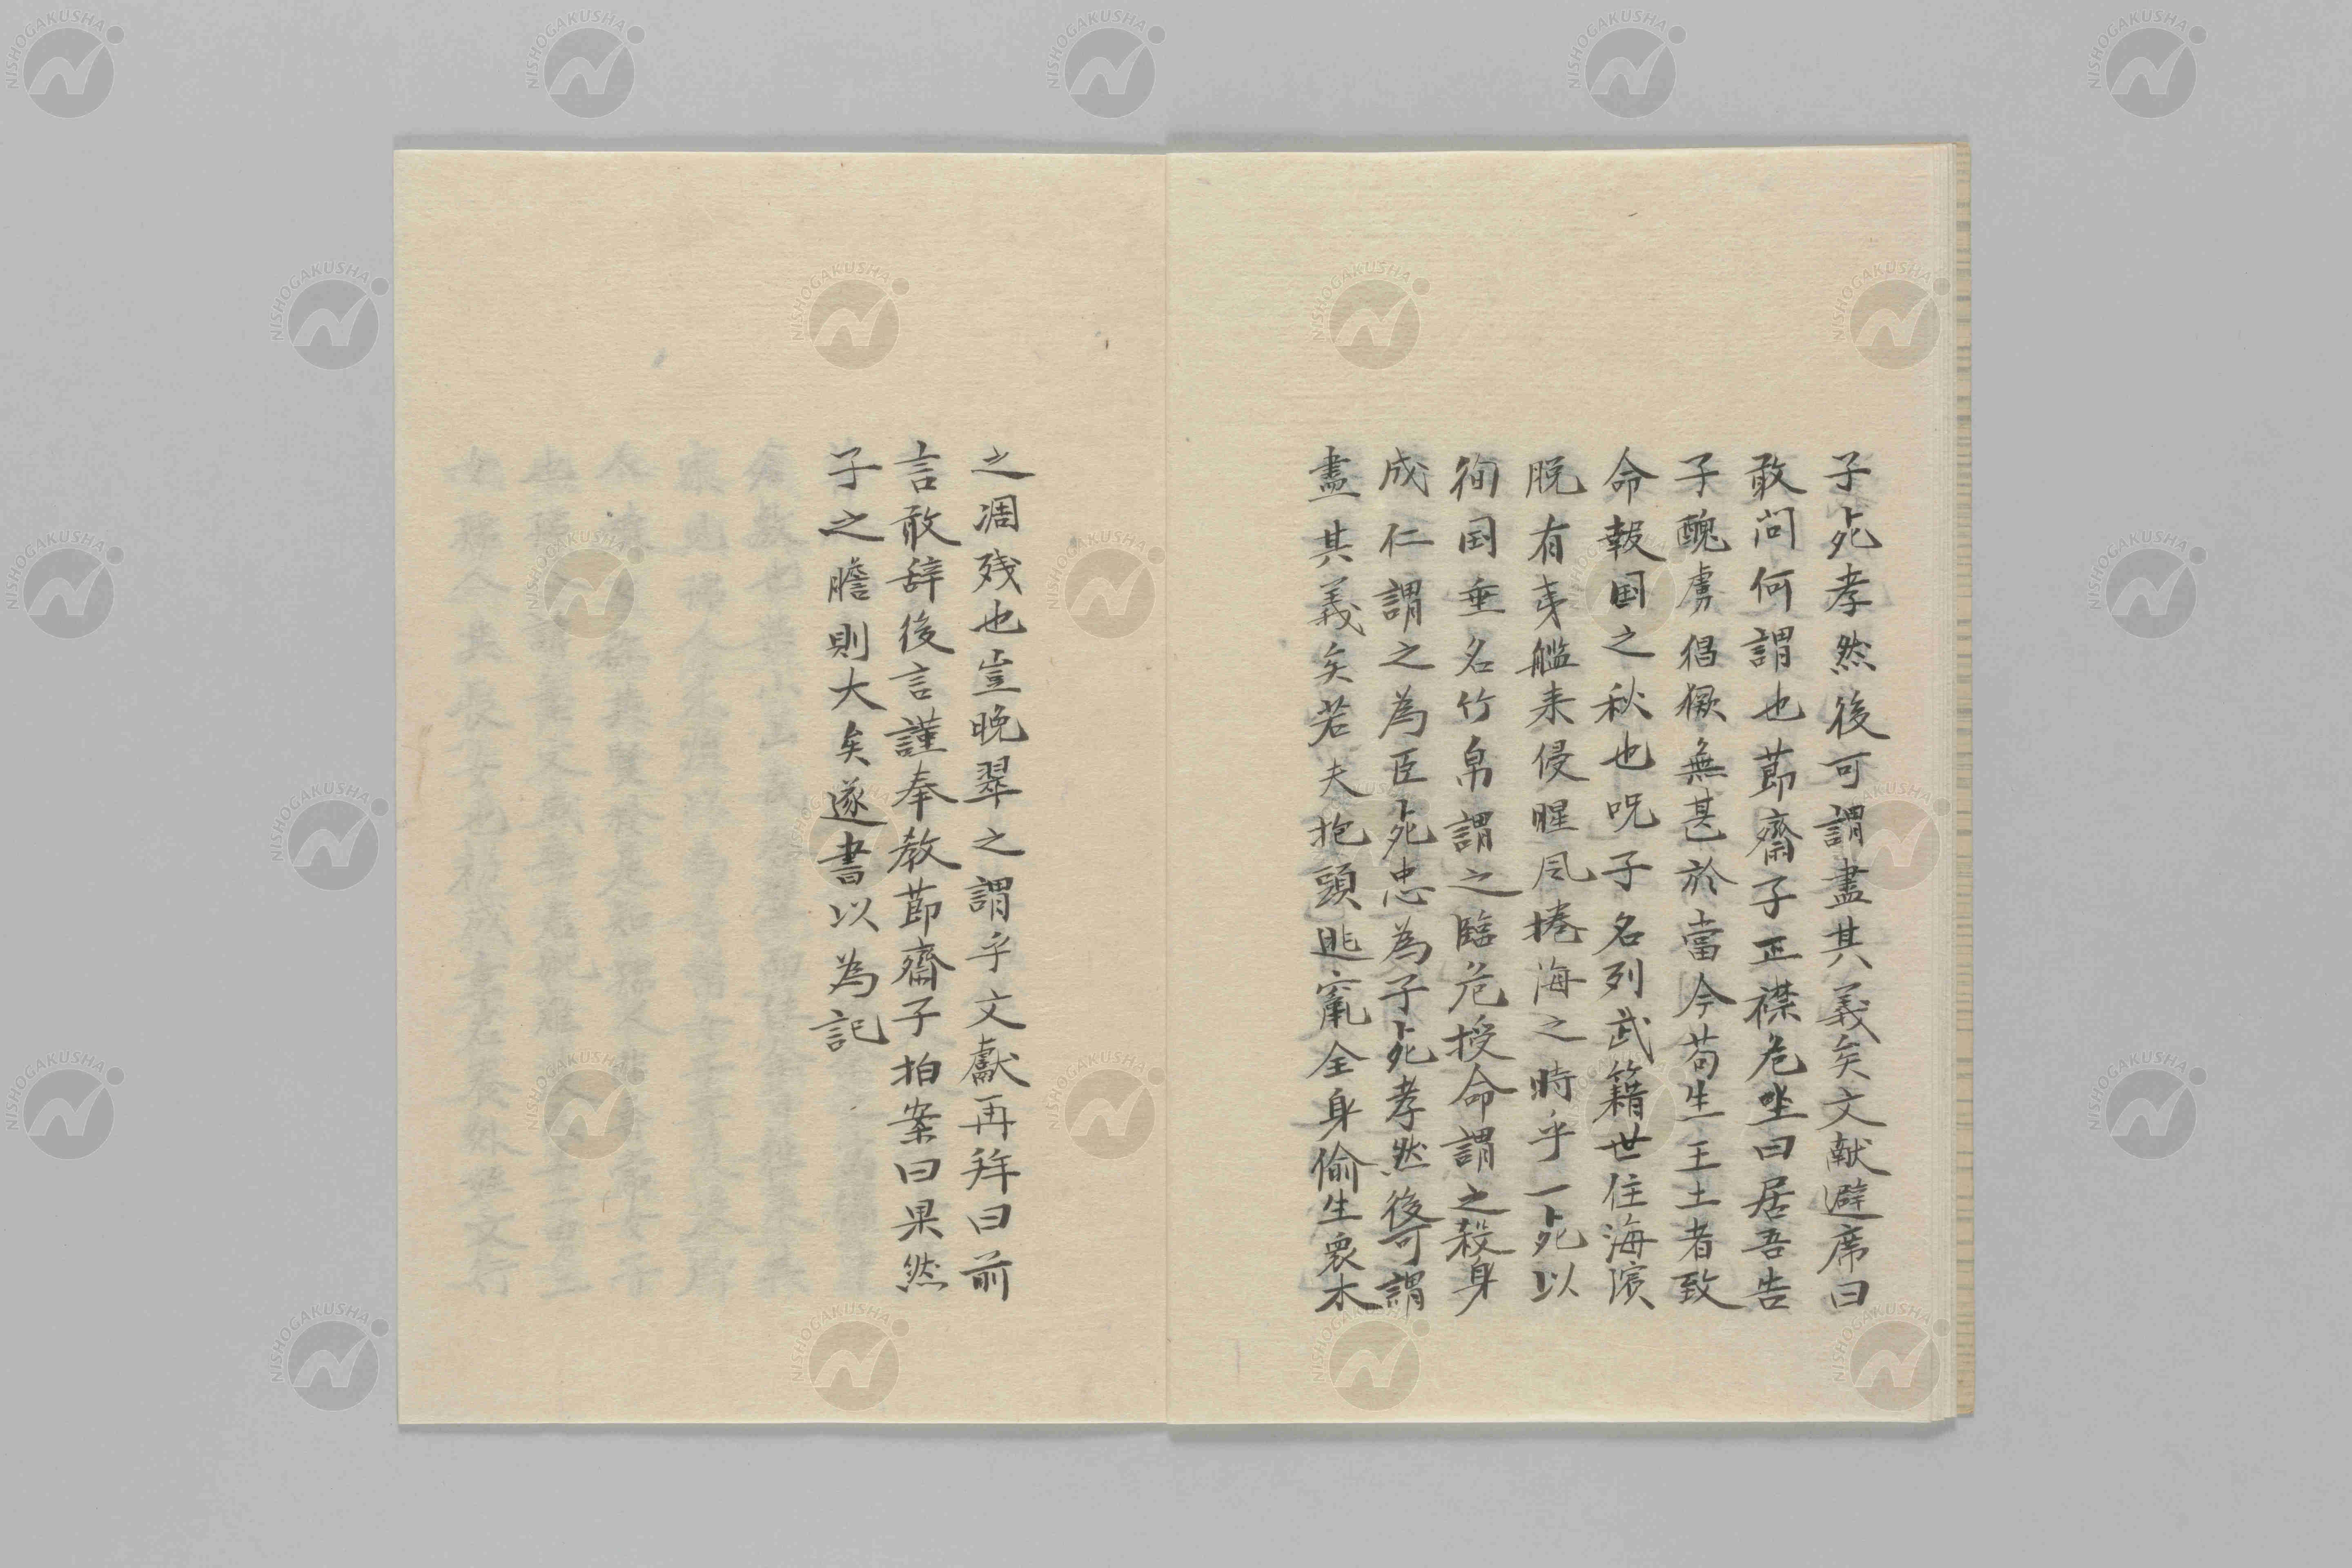 子死孝然後可謂盡其義矣文献避席曰
敢問何謂也莭齋子正襟危坐曰居吾告
子醜虜倡獗無甚於當今苟生王土者致
命報国之秋也况子名列武籍世住海濱
脱有夷艦来侵腥風捲海之時乎一死以
徇国垂名竹帛謂之臨危授命謂之殺身
成仁謂之為臣死忠為子死孝然後可謂
盡其義矣若夫抱頭逃竄全身偷生衆木
之凋残也豈晩翠之謂乎文獻再拜曰前
言敢辞後言謹奉教莭齋子拍案曰果然
子之膽則大矣遂書以為記
NISHOGAKUSHA